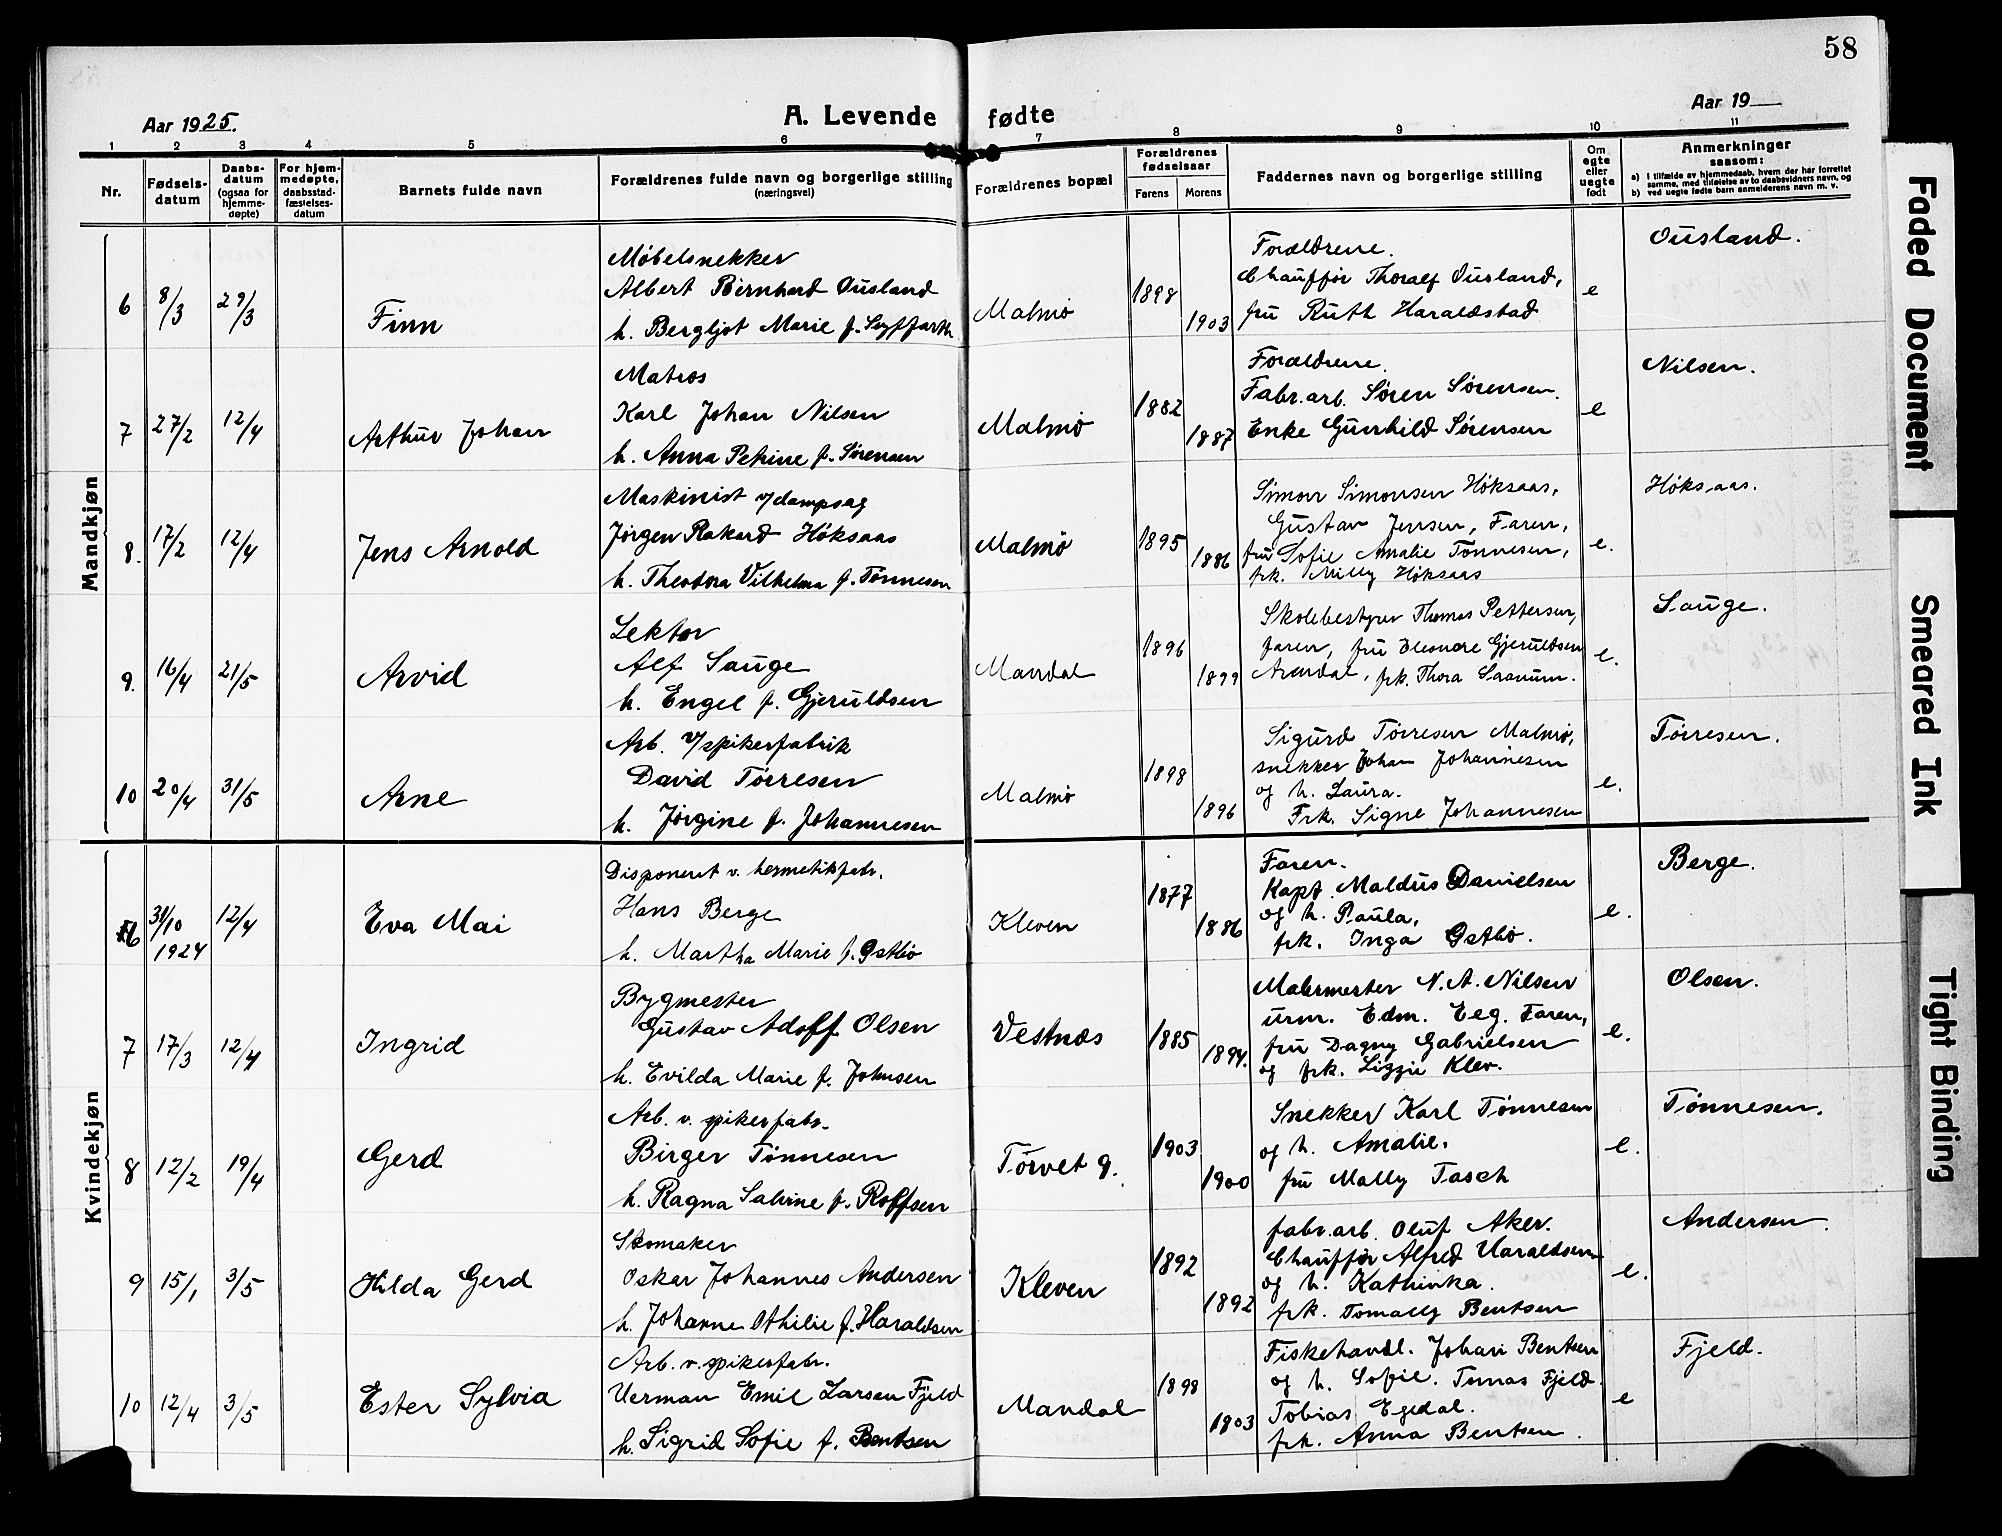 58
Aar 1925.
A. Levende fødte
Aar 19
1 2 3 4 5 6 7 8 9 10 11
Nr.
Fødsels-
datum
Daabs-
datum
(ogsaa for
hjemme-
døpte)
For hjem-
medøpte,
daabsstad-
fæstelses-
datum
Barnets fulde navn
Forældrenes fulde navn og borgerlige stilling
(næringsvei)
Forældrenes bopæl
Forældrenes
fødselsaar
Farens Morens
Faddernes navn og borgerlige stilling
Om
egte
eller
uegte
født
Anmerkninger
saasom:
a) i tilfælde av hjemmedaab, hvem der har forrettet
samme, med tilføielse av to daabsvidners navn, og
b) ved uegte fødte barn anmelderens navn m. v.
Mandkjøn
6 8/3 29/3 Finn
Møbelsnekker
Albert Bernhard Ousland
h. Bergljot Marie f. Seyffarth
Malmø 1898 1903
Forældrene.
Chauffør Thoralf Ousland,
fru Ruth Haraldstad
e
Ousland.
7 27/2 12/4 Arthur Johan
Matros
Karl Johan Nilsen
h. Anna Petrine f. Sørensen
Malmø 1882 1887
Forældrene.
Fabr.arb. Søren Sørensen.
Enke Gunhild Sørensen
e
Nilsen.
8. 17/2 12/4 Jens Arnold
Maskinist v/dampsag
Jørgen Rakerd Høksaas
h. Theodora Vilhelma f. Tønnesen
Malmø 1895 1886
Simon Simonsen Høksaas,
Gustav Jensen, Faren,
fru Sofie Amalie Tønnesen,
frk. Milly Høksaas
e.
Høksaas.
9. 16/4 21/5 Arvid
Lektor
Alf Sauge
h. Engel f. Gjeruldsen
Mandal 1896 1899
Skolebestyrer Thomas Pettersen,
faren, fru Eleonore Gjeruldsen
Arendal, frk. Thora Saanum.
e.
Sauge.
10 20/4 31/5 Arne
Arb. v/spikerfabrik
David Tørresen
h. Jørgine f. Johannesen
Malmø 1898 1896
Sigurd Tørresen Malmø,
snekker Johan Johannesen
og h. Laura.
Frk. Signe Johannesen
e.
Tørresen.
Kvindekjøn
6 31/10 1924 12/4 Eva Mai
Disponent v. hermetikfabr.
Hans Berge
h. Martha Marie f. Østbø
Kleven 1877 1886
Faren.
Kapt. Maldus Danielsen
og h. Paula,
frk. Inga Østbø.
e.
Berge.
7 17/3 12/4 Ingrid
Bygmester
Gustav Adolf Olsen
h. Evilda Marie f. Johnsen
Vestnæs 1885 1894.
Malermester N. A. Nilsen
urm. Edm. Eeg. Faren,
fru Dagny Gabrielsen
og frk. Lizzie Klev.
e.
Olsen.
8 12/2 19/4 Gerd
Arb. v. spikerfabr.
Birger Tønnesen
h. Ragna Sabine f. Rolfsen
Torvet g. 1903 1900
Snekker Karl Tønnesen
og h. Amalie.
fru Mally Tasch
e.
Tønnesen.
9 15/1 3/5 Hilda Gerd
Skomaker
Oskar Johannes Andersen
h. Johanne Othilie f. Haraldsen
Kleven 1892 1892
fabr.arb. Oluf Aker.
Chauffør Alfred Haraldsen
og h. Kathinka.
frk. Tomally Bentsen
e.
Andersen.
10 12/4 3/5 Ester Sylvia
Arb. v. spikerfabr.
Herman Emil Larsen Fjeld
h. Sigrid Sofie f. Bentsen
Mandal 1898 1903
Fiskehandl. Johan Bentsen
og h. Sofie. Tomas Fjeld.
Tobias Egedal.
frk. Anna Bentsen.
e
Fjeld.
Faded Document
Smeared Ink
Tight Binding